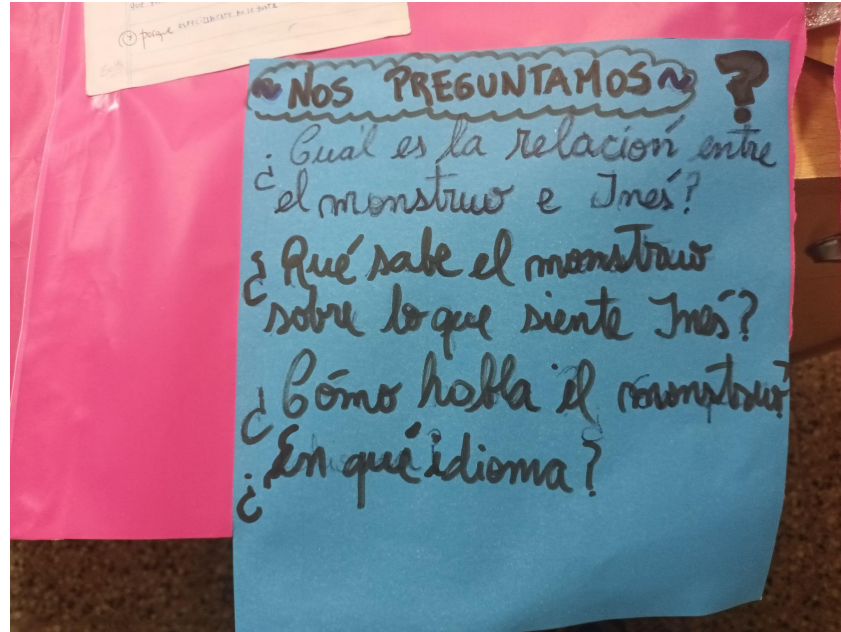 porque
~NOS PREGUNTAMOS~ ?
¿Cuál es la relación entre
el monstruo e Inés?
¿Qué sabe el monstruo
sobre lo que siente Inés?
¿Cómo habla el monstruo?
¿En qué idioma?